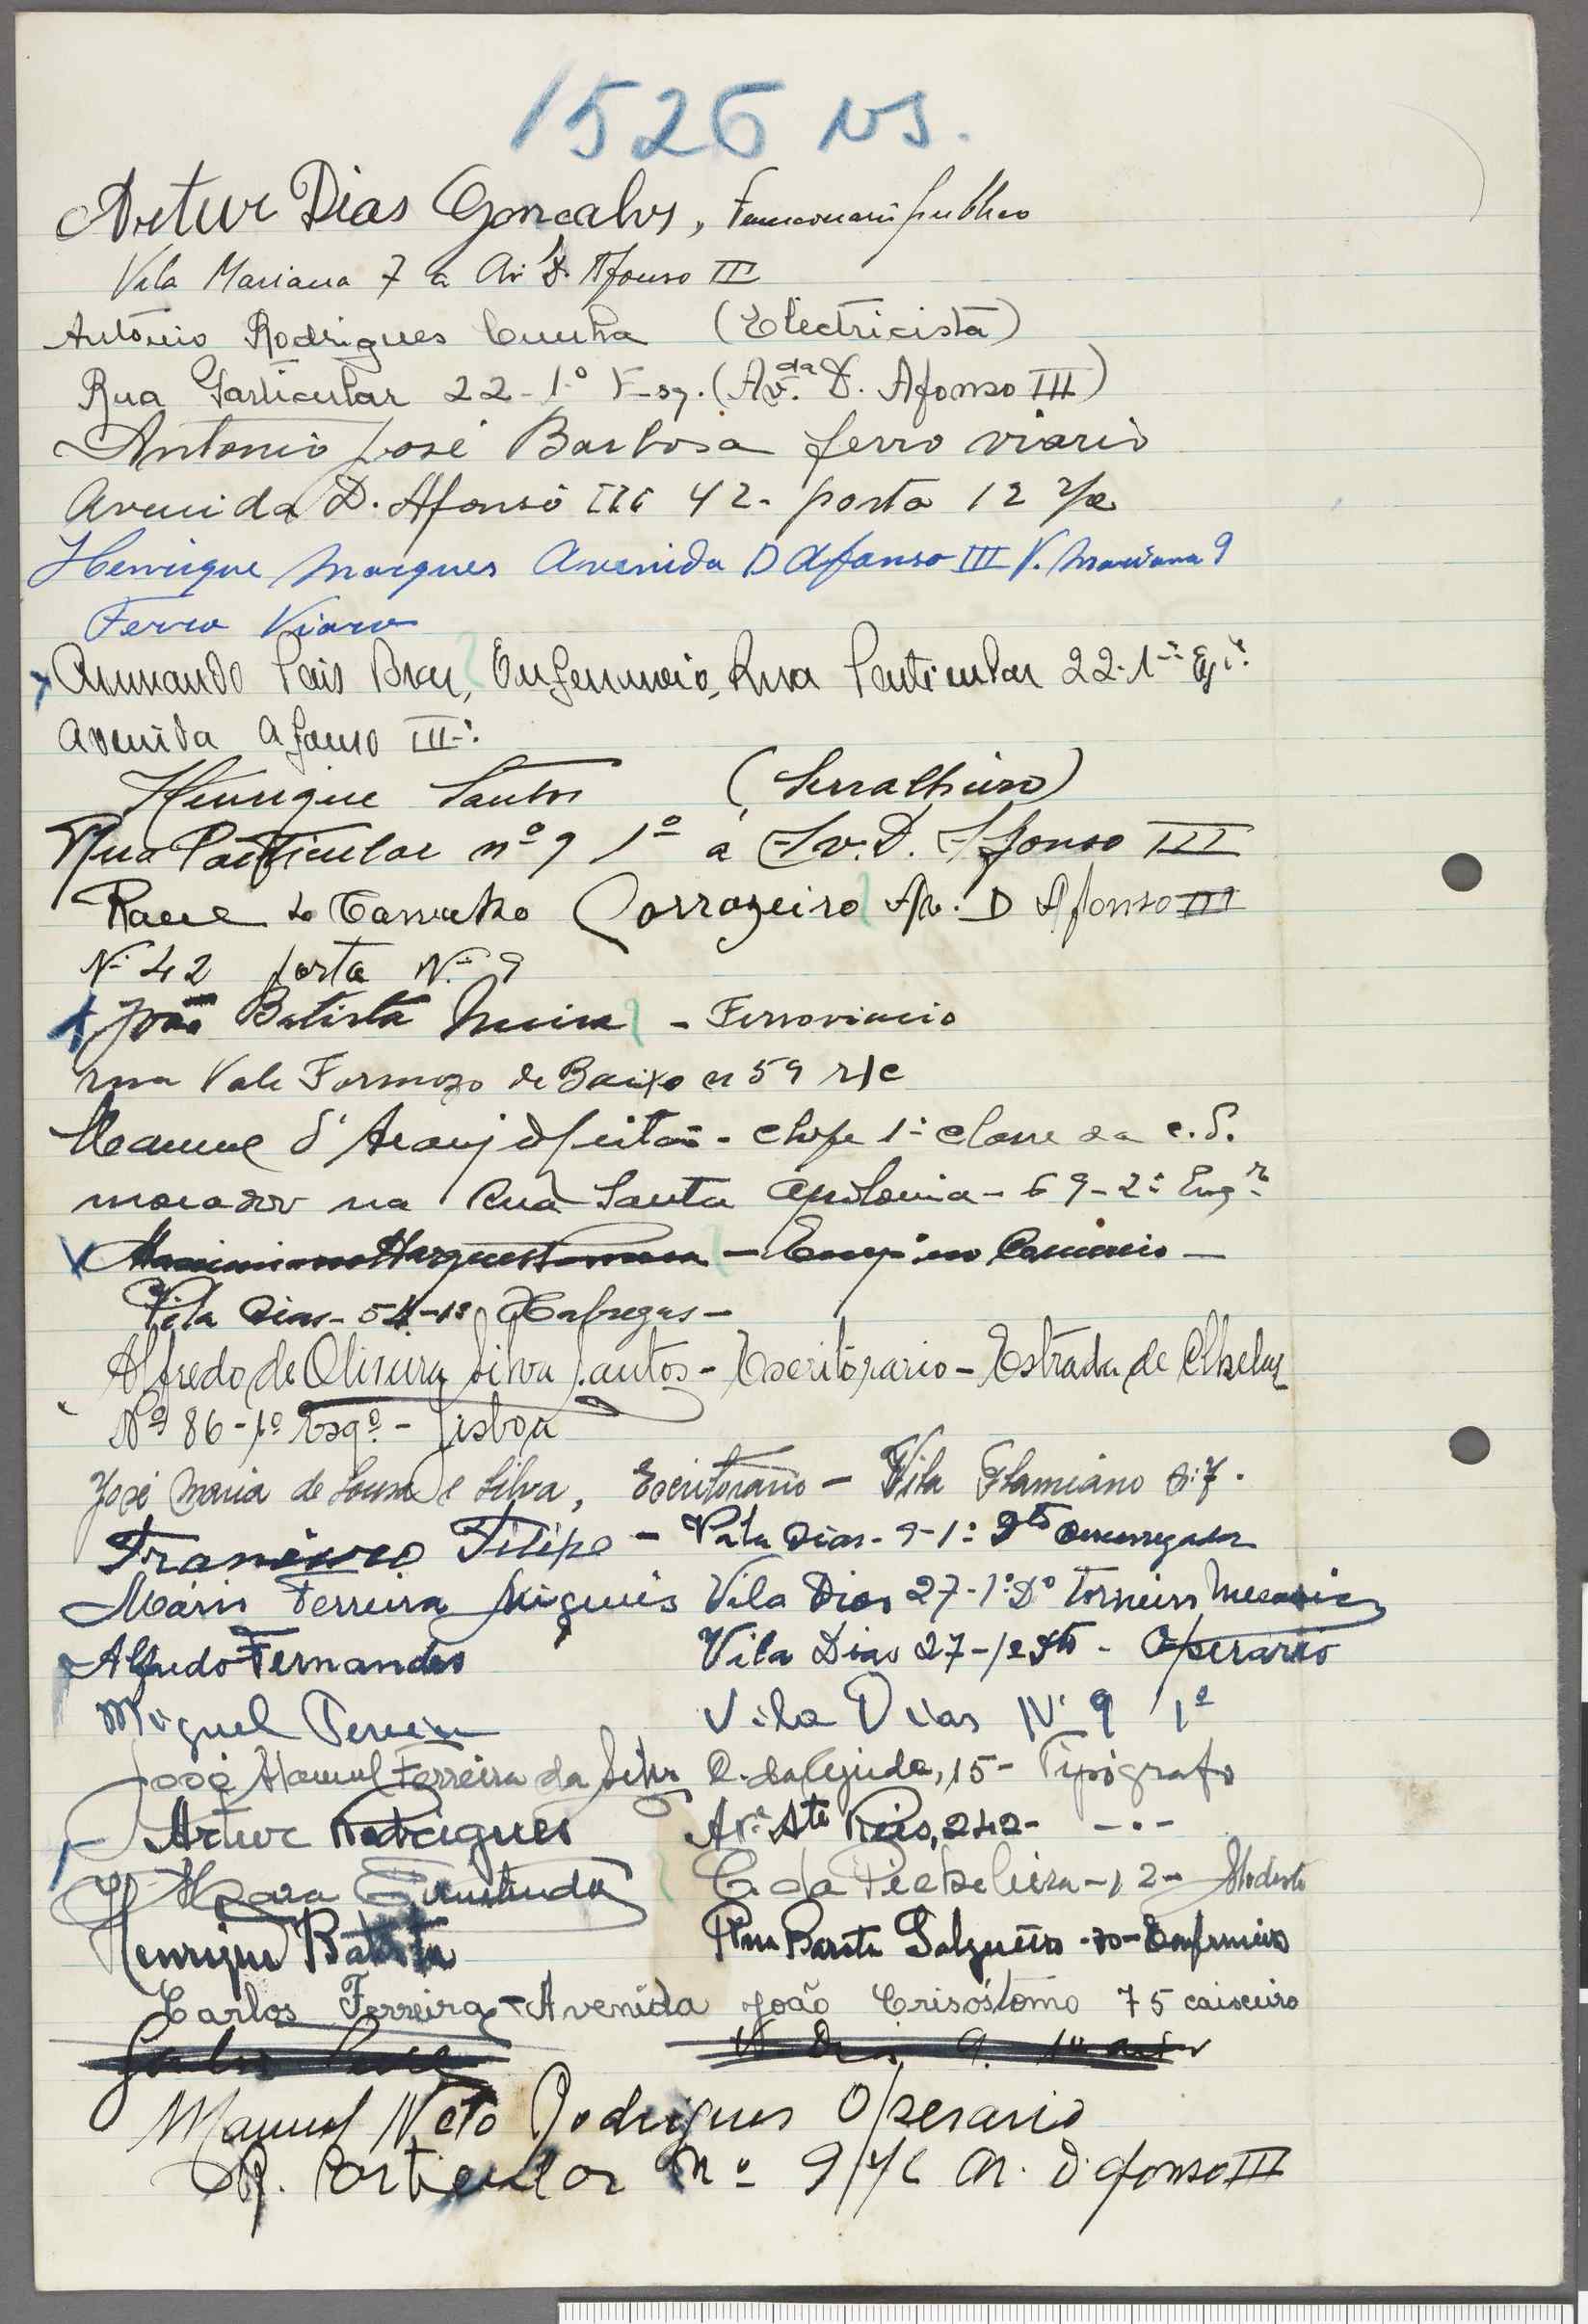 1526 NS.
Artur Dias Goncalves, Funcionario publico
Vila Mariana 7 a Av. D. Afonso III
António Rodrigues Cunha (Electricista)
Rua Particular 22-1.º Esq. (Av.da D. Afonso III)
Antonio José Barbosa ferro viario
Avenida D. Afonso III 42- porta 12 r/c
Henrique Marques Avenida D Afonso III V. Mariana 9
Ferro Viario
Armando Pais Enfermeiro, Rua Particular 22-1.º
Avenida Afonso III
Henrique Santos (Serralheiro)
Rua Particular nº 9 1º á Av. D. Afonso III
Carvalho Corrozeiro Av. D Afonso III
Nº 42 porta Nº 9
João Batista - Ferroviario
rua Vale Formozo de Baixo n 59 r/c
Manuel d'Araujo - chefe 1ª classe da
morador na Rua Santa Apolonia - 69 - 2º
- Emp. no Comercio -
Vila Dias - 54 - 1º Xabregas -
Alfredo de Oliveira Silva Santos - Escritorario - Estrada de Chelas
Nº 86 - 1º Esqº - Lisboa
José Maria de Sousa e Silva, Escritorario - Vila Flamiano nº 7.
Francisco Filipe - Vila Dias - 9 - 1º Dto Descarregador
Mário Ferreira Miguéis Vila Dias 27-1º Dº Torneiro Mecanico
Alfredo Fernandes Vila Dias 27-1º Dto - Operario
Miguel Pereira Vila Dias Nº 9 1º
José Manuel Ferreira da Silva C. da Ajuda, 15 - Tipógrafo
Artur Rodrigues Av.ª Alte Reis, 242 - - . -
C. da Picheleira - 12 -
Henrique Batista Rua Barata Salgueiro - 30 - Enfermeiro
Carlos Ferreira - Avenida João Crisóstomo 75 caixeiro
Manuel Neto Rodrigues Operario
R. Particular Nº 9 r/c Av. D. Afonso III